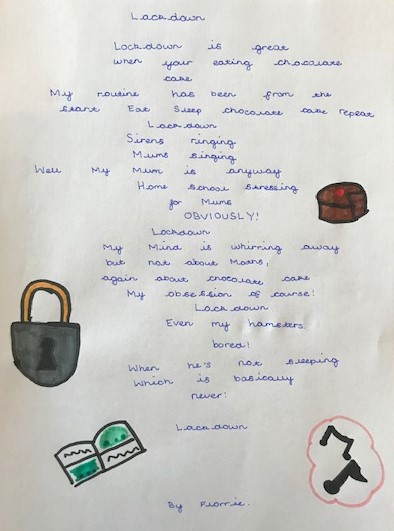 Lockdown
Lockdown is great
when your eating chocolate
cake
My routine has been from the
start Eat Sleep chocolate cake repeat
Lockdown
Sirens ringing
Mums singing
Well My Mum is anyway
Home School stressing
for Mums
OBVIOUSLY!
Lockdown
My Mind is whirring away
but not about Maths,
again about chocolate cake
My obsession of course!
Lockdown
Even my hamsters
bored!
When he's not sleeping
Which is basically
never!
Lockdown
By Florrie.